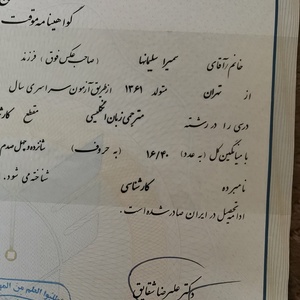 گواهینامه موقت
خانم/آقای سمیرا سلیمانها (صاحب عکس فوق) فرزند
از تهران متولد ۱۳۶۱ ازطریق آزمون سراسری سال
درسی را در رشته مترجمی زبان انگلیسی مقطع
با میانگین کل (به عدد) ۱۶/۴۰ (به حروف) شانزده و چهل صدم
نامبرده کارشناسی شناخته می شود.
ادامه تحصیل در ایران صادر شده است.
دکتر علیرضا شقایق
اطلبوا العلم من